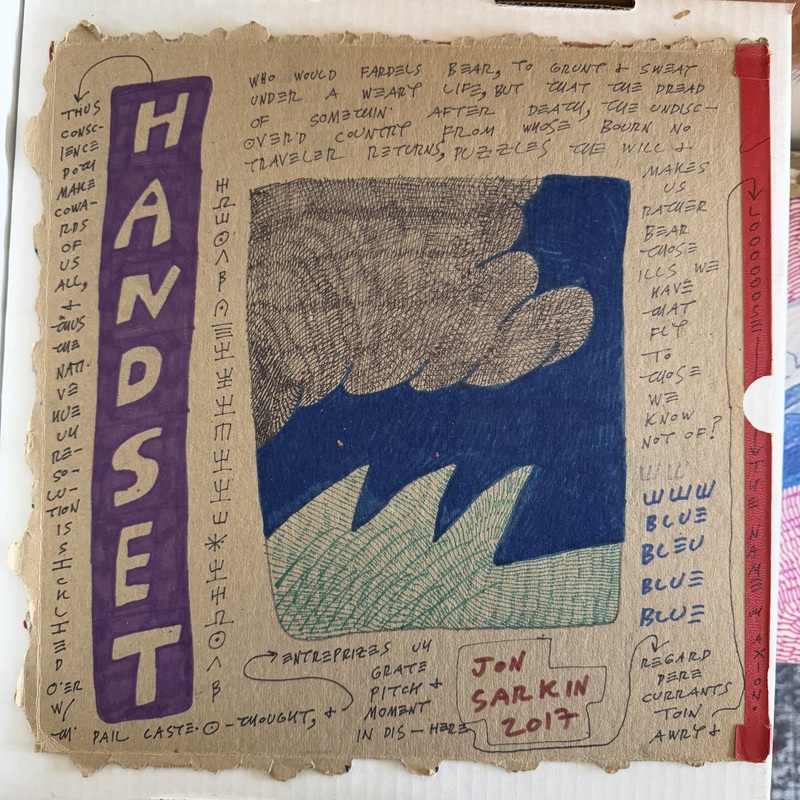 WHO WOULD FARDELS BEAR, TO GRUNT & SWEAT
UNDER A WEARY LIFE, BUT THAT THE DREAD
OF SOMETHIN' AFTER DEATH, THE UNDISC-
OVER'D COUNTRY FROM WHOSE BOURN NO
TRAVELER RETURNS, PUZZLES THE WILL &
MAKES
US
RATHER
BEAR
THOSE
ILLS WE
HAVE
THAT
FLY
TO
THOSE
WE
KNOW
NOT OF?
WWW
BLUE
BLEU
BLUE
BLUE
THUS
CONSC-
IENCE
DOTH
MAKE
COWA-
RDS
OF
US
ALL,
&
THUS
THE
NATI-
VE
HUE
UV
RE-
SO-
LU-
TION
IS
SICKLIED
O'ER
W/
TH' PAIL CASTE ⊙-THOUGHT, &
HANDSET
ENTREPRIZES UV
GRATE
PITCH &
MOMENT
IN DIS-HERE
JON
SARKIN
2017
REGARD
DERE
CURRANTS
TOIN
AWRY &
LOOOOOSE
THE NAME UV AXION.